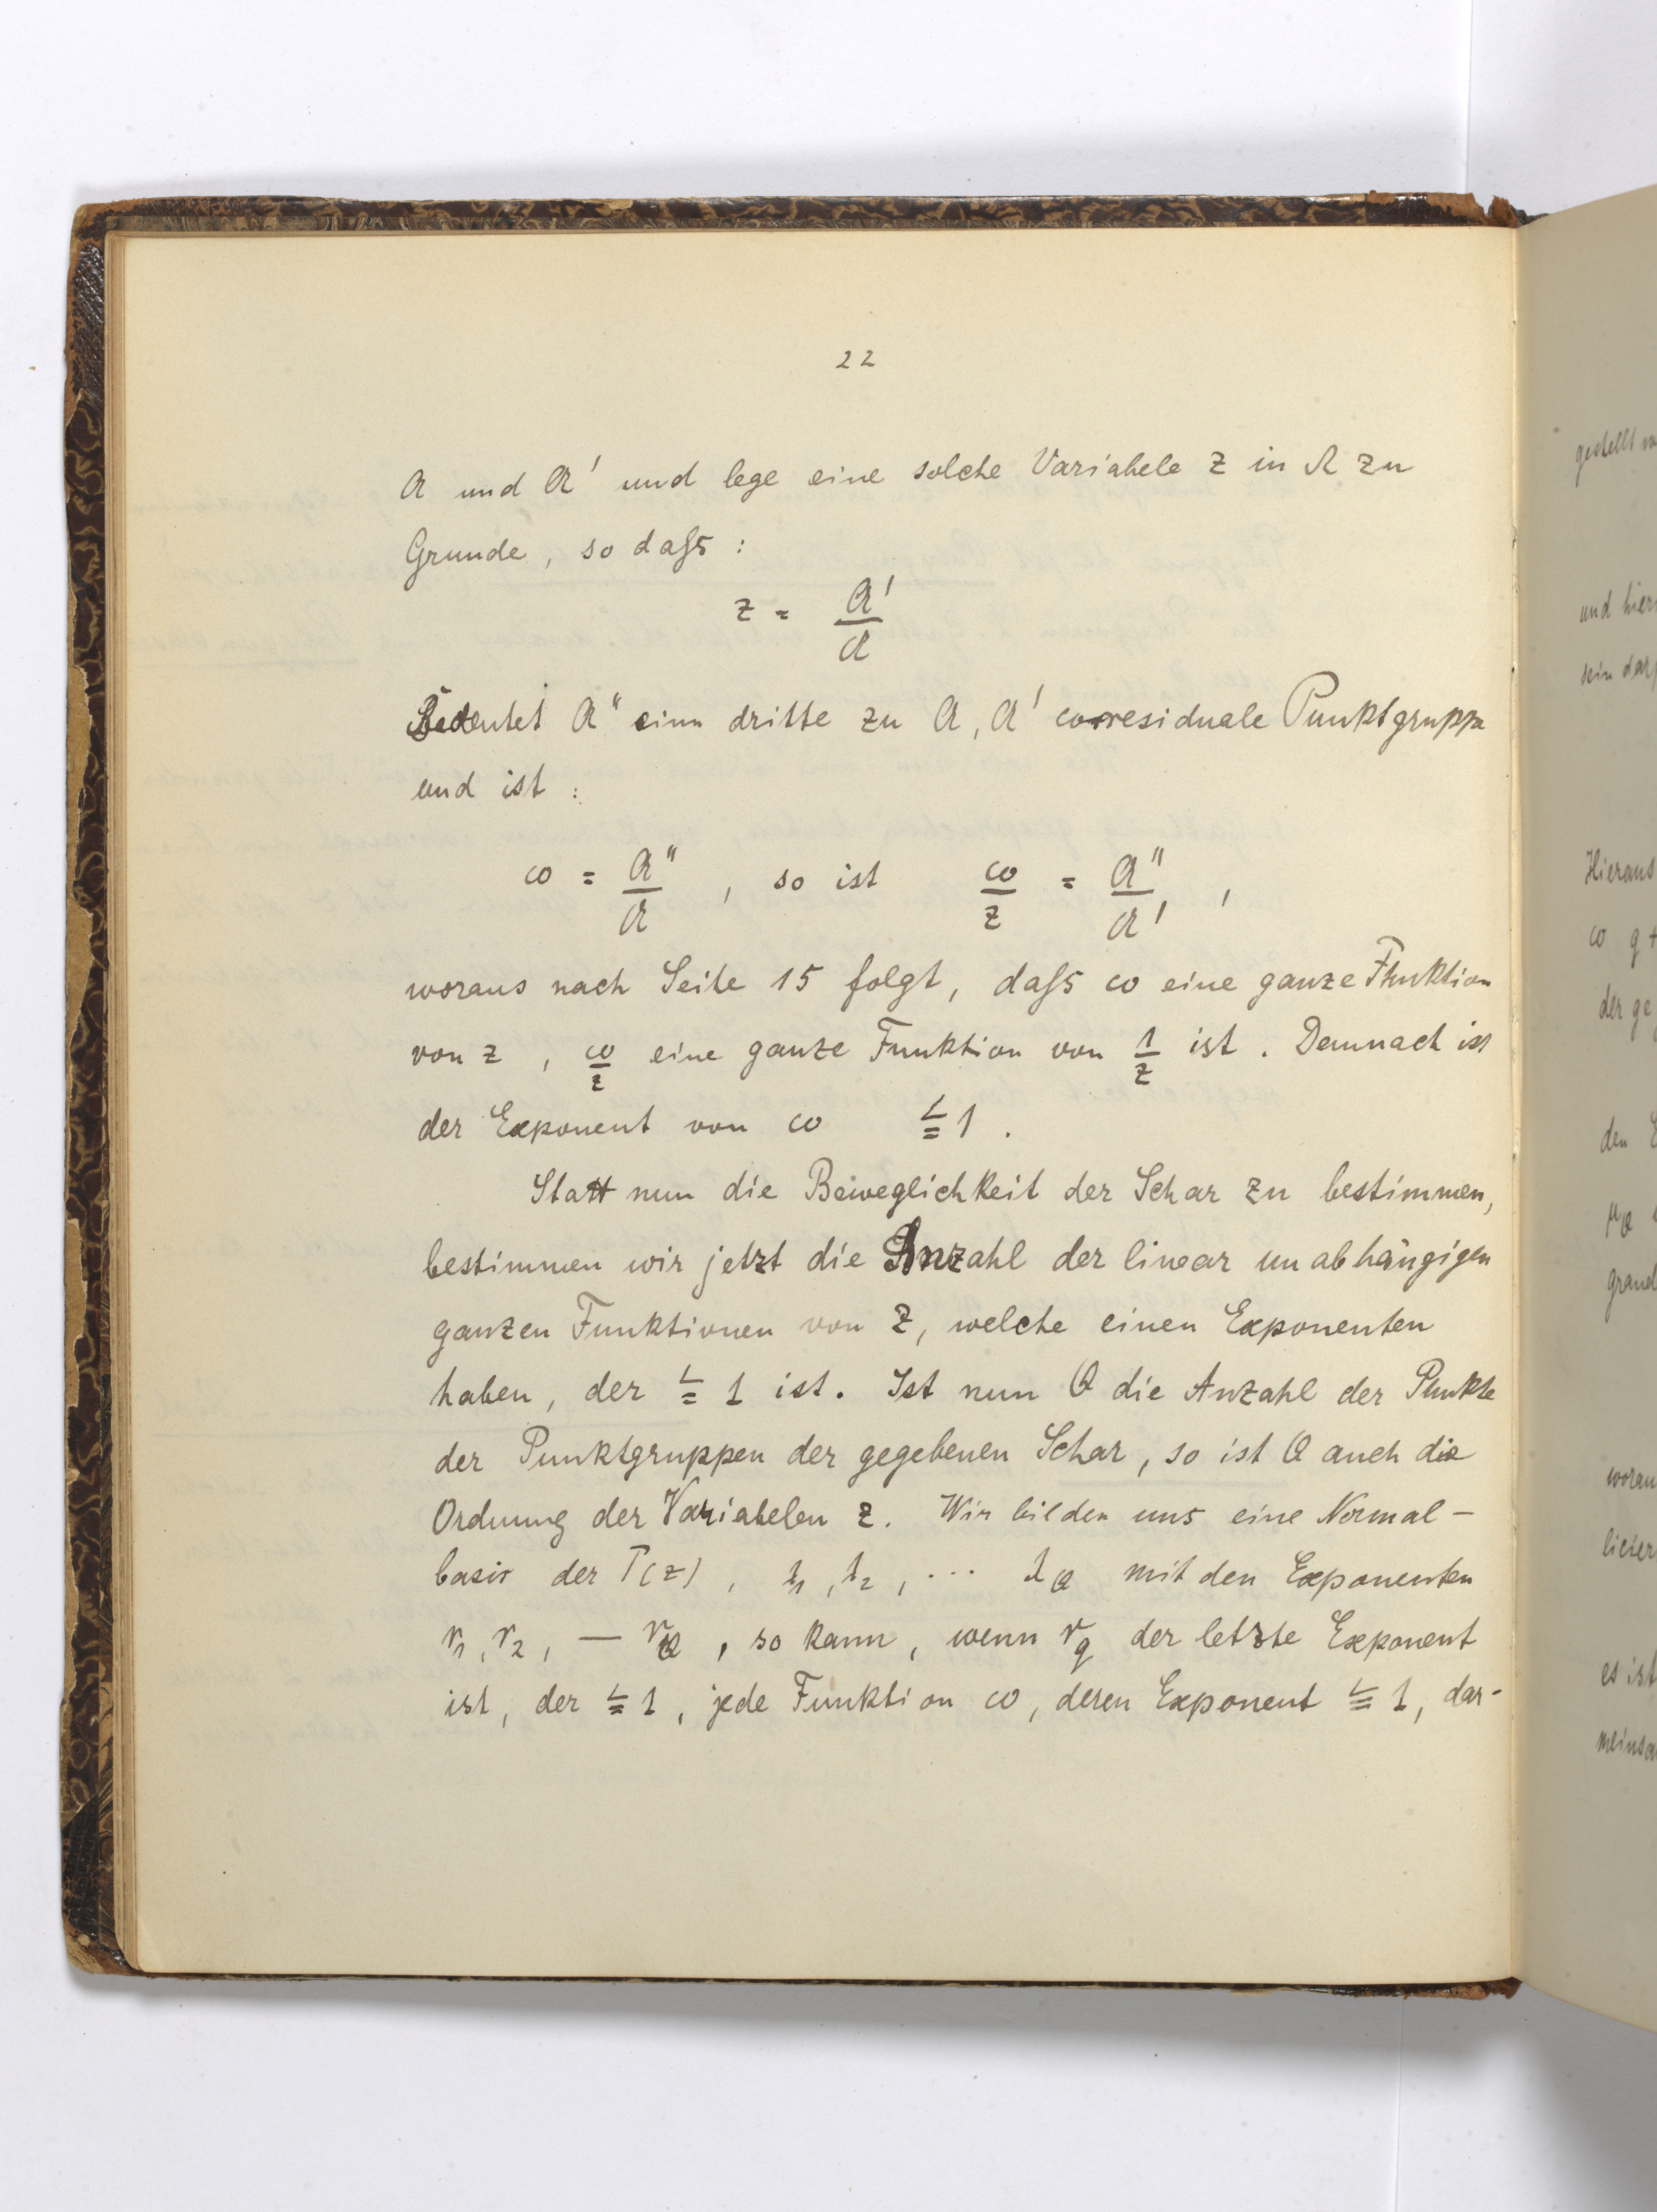 22
A und A' und lege eine solche Variabele z in Ω zu
Grunde, so daſs:
z = A'/A
Bedeutet A" eine dritte zu A, A' corresiduale Punktgruppe
und ist:
ω = A"/A , so ist ω/z = A"/A' ,
woraus nach Seite 15 folgt, daſs ω eine ganze Funktion
von z , ω/z eine ganze Funktion von 1/z ist. Demnach ist
der Exponent von ω ≦ 1 .
Statt nun die Beweglichkeit der Schar zu bestimmen,
bestimmen wir jetzt die Anzahl der linear unabhängigen
ganzen Funktionen von z, welche einen Exponenten
haben, der ≦ 1 ist. Ist nun Q die Anzahl der Punkte
der Punktgruppen der gegebenen Schar, so ist Q auch die
Ordnung der Variabelen z. Wir bilden uns eine Normal-
basis der T(z) , λ₁, λ₂, ... λ_Q mit den Exponenten
r₁, r₂, — r_Q , so kann, wenn r_q der letzte Exponent
ist, der ≦ 1, jede Funktion ω, deren Exponent ≦ 1, dar-
gestellt
und hier
sein darf
Hieraus
ω
der ge
den
μ_Q
woraus
es ist